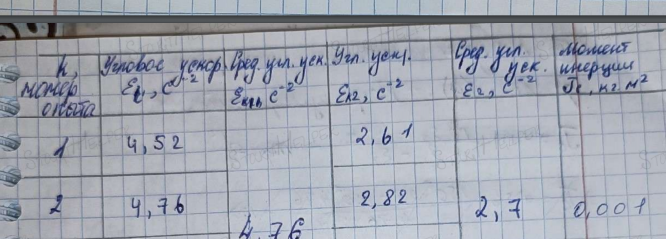 К, Угловое ускор. Сред. угл. уск. Угл. уск. Сред. угл. Момент
номер уск. инерции
опыта c⁻² c⁻² c⁻² c⁻² кг м²
1 4,52 2,61
2 4,76 2,82 2,7 0,001
4,76